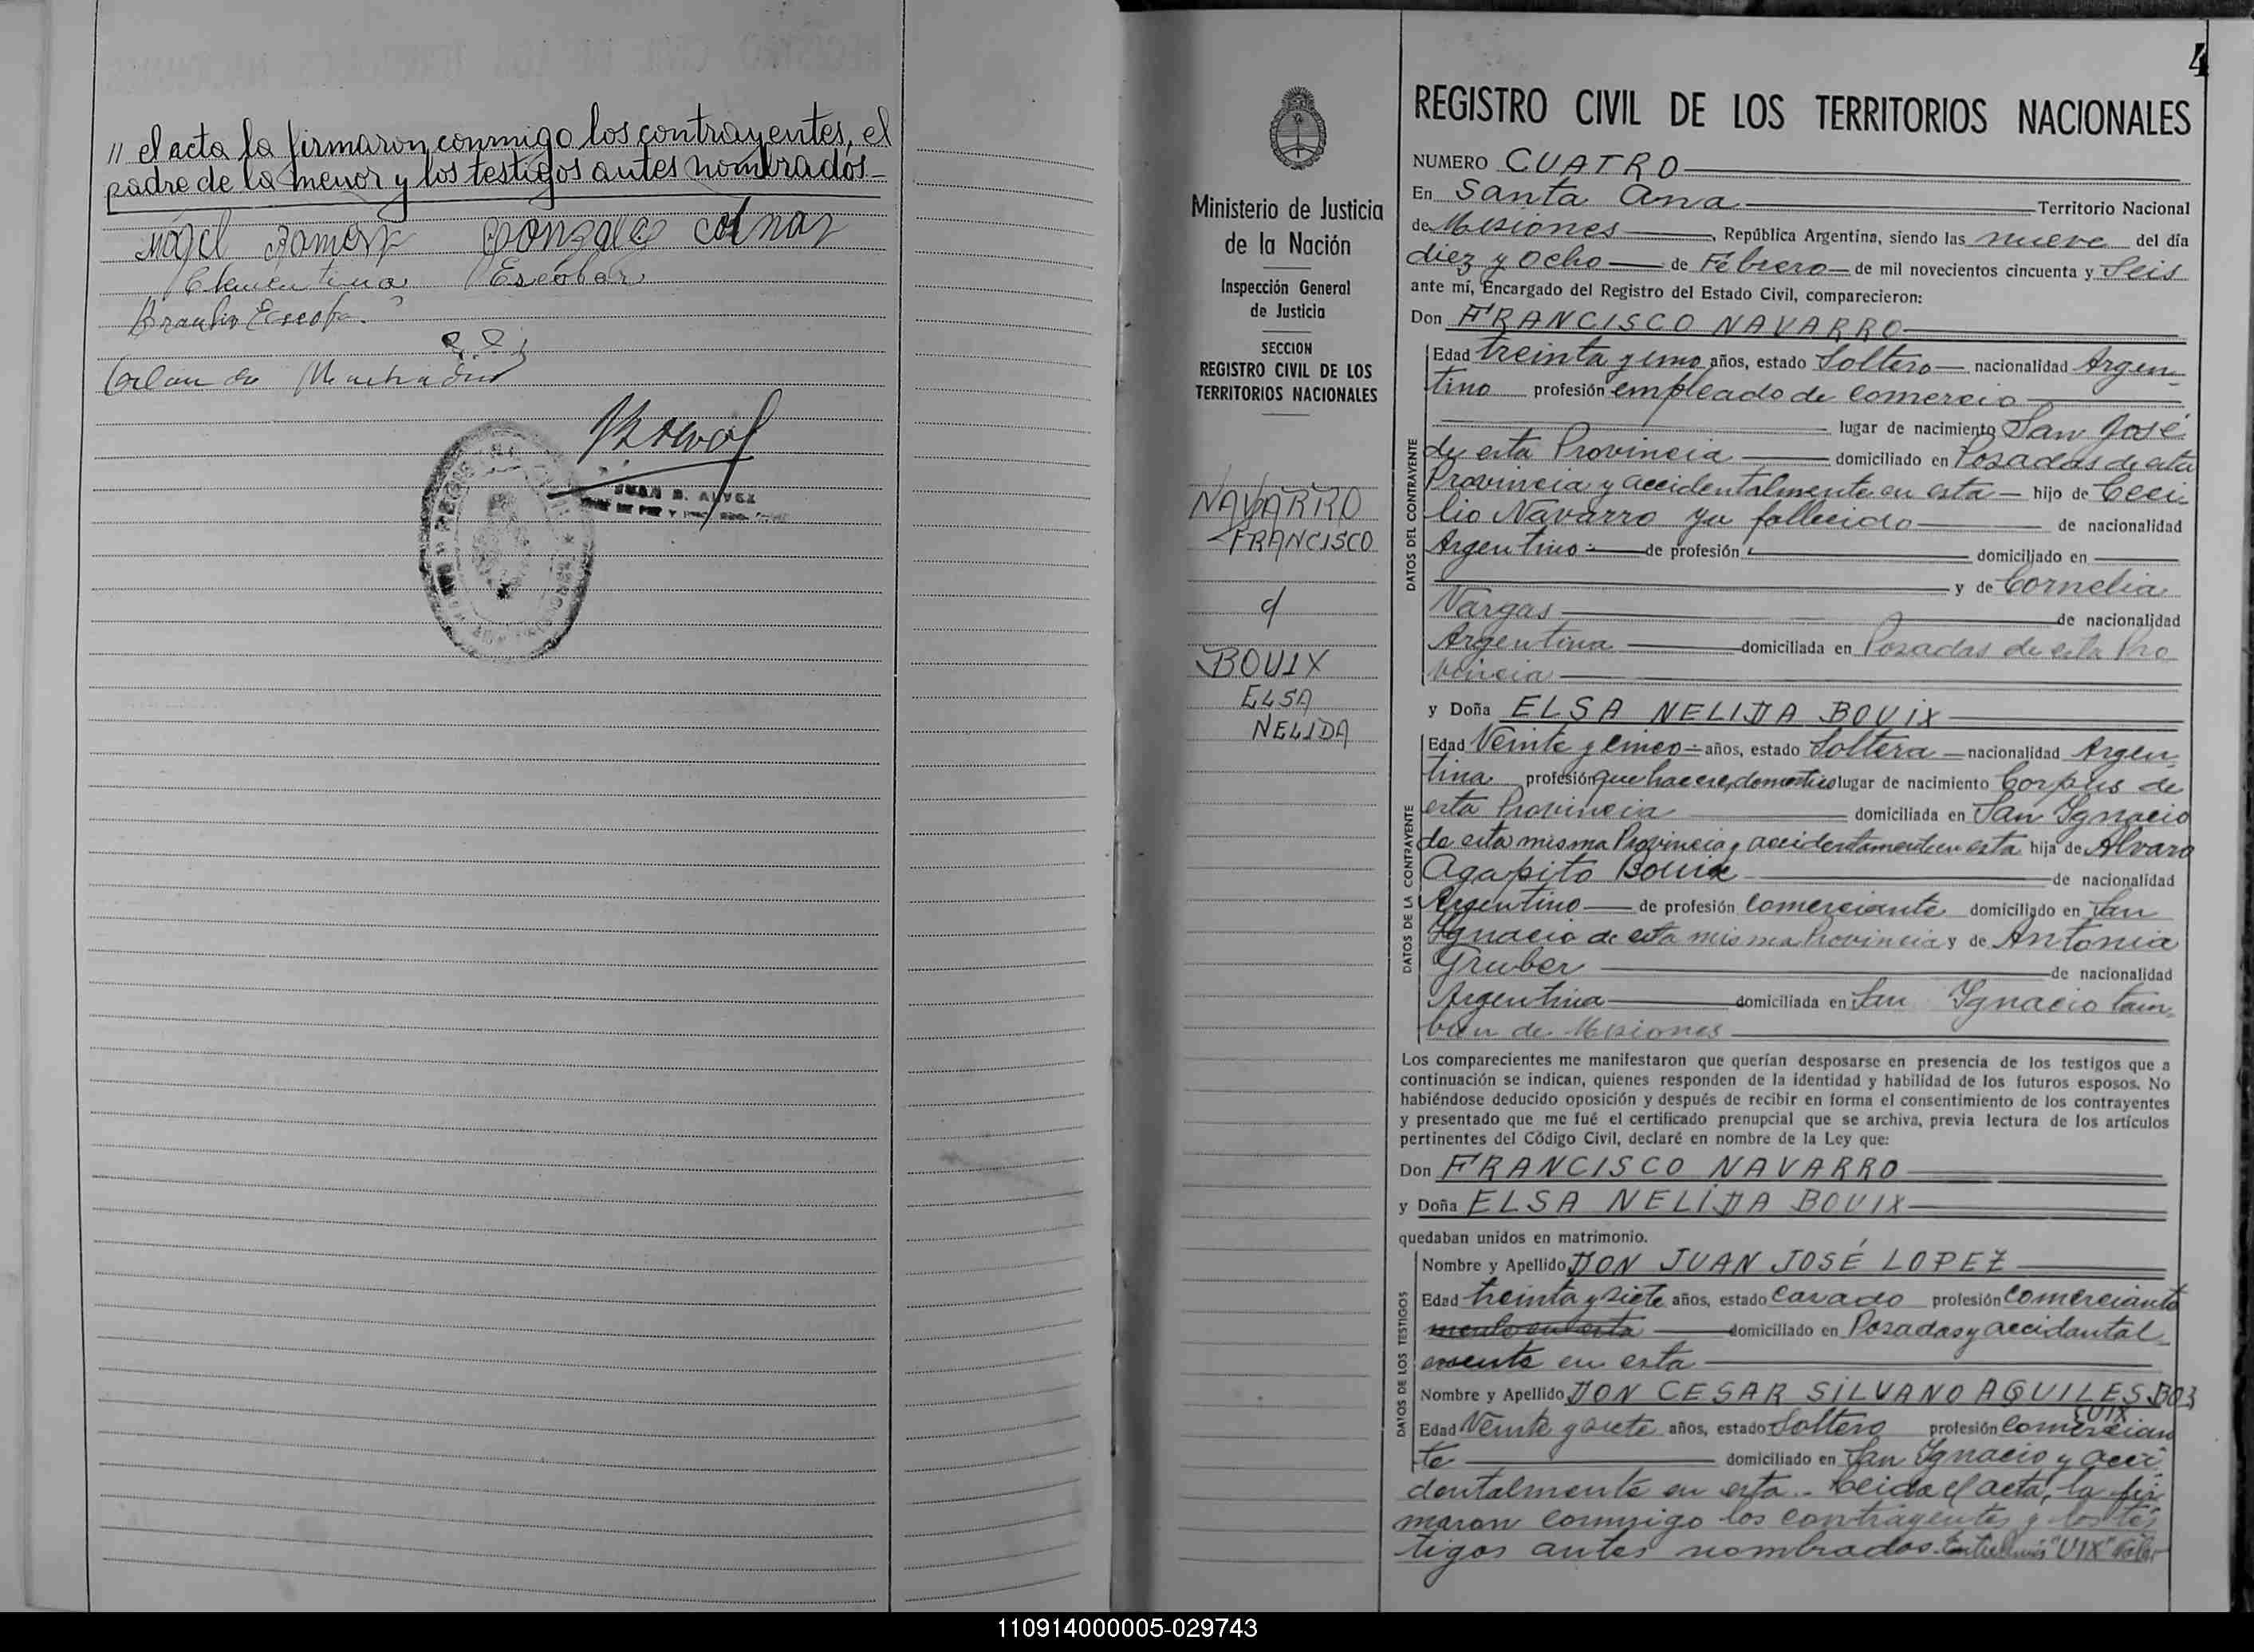 // el acta la firmaron conmigo los contrayentes, el
padre de la menor y los testigos antes nombrados.—
Clementina Escobar
Braulio Escobar
JUAN B. ALVEZ
4
Ministerio de Justicia
de la Nación
Inspección General
de Justicia
SECCION
REGISTRO CIVIL DE LOS
TERRITORIOS NACIONALES
NAVARRO
FRANCISCO
BOUIX
ELSA
NELIDA
REGISTRO CIVIL DE LOS TERRITORIOS NACIONALES
NUMERO CUATRO
En Santa Ana Territorio Nacional
de Misiones, República Argentina, siendo las nueve del día
diez y ocho de Febrero de mil novecientos cincuenta y Seis
ante mí, Encargado del Registro del Estado Civil, comparecieron:
Don FRANCISCO NAVARRO
DATOS DEL CONTRAYENTE
Edad treinta y uno años, estado Soltero nacionalidad Argen-
tino profesión empleado de comercio
lugar de nacimiento San José
de esta Provincia domiciliado en Posadas de esta
Provincia y accidentalmente en esta hijo de Ceci-
lio Navarro ya fallecido de nacionalidad
Argentino de profesión domiciliado en
y de Cornelia
Vargas de nacionalidad
Argentina domiciliada en Posadas de esta Pro
vincia
y Doña ELSA NELIDA BOUIX
DATOS DE LA CONTRAYENTE
Edad Veinte y cinco años, estado Soltera nacionalidad Argen-
tina profesión que haceres domestico lugar de nacimiento Corpus de
esta Provincia domiciliada en San Ignacio
de esta misma Provincia y accidentamente en esta hija de Alvaro
Agapito Bouix de nacionalidad
Argentino de profesión Comerciante domiciliado en San
Ignacio de esta misma Provincia y de Antonia
Gruber de nacionalidad
Argentina domiciliada en San Ignacio tam-
bien de Misiones
Los comparecientes me manifestaron que querían desposarse en presencia de los testigos que a
continuación se indican, quienes responden de la identidad y habilidad de los futuros esposos. No
habiéndose deducido oposición y después de recibir en forma el consentimiento de los contrayentes
y presentado que me fué el certificado prenupcial que se archiva, previa lectura de los artículos
pertinentes del Código Civil, declaré en nombre de la Ley que:
Don FRANCISCO NAVARRO
y Doña ELSA NELIDA BOUIX
quedaban unidos en matrimonio.
DATOS DE LOS TESTIGOS
Nombre y Apellido DON JUAN JOSÉ LOPEZ
Edad treinta y siete años, estado Casado profesión Comerciante
domiciliado en Posadas y accidantal
mente en esta
Nombre y Apellido DON CESAR SILVANO AQUILES BO
UIX
Edad Veinte y siete años, estado Soltero profesión Comercian
te domiciliado en San Ignacio y acci-
dentalmente en esta.- Leida el acta, la fir
maron conmigo los contrayentes y los tes
tigos antes nombrados.- Entrelineas "UIX" Vale-
110914000005-029743